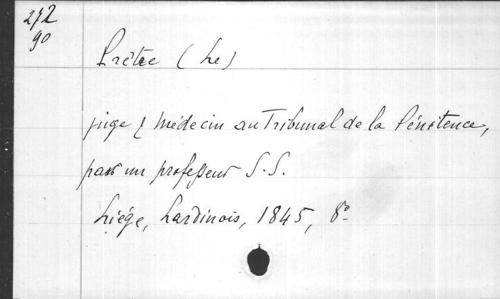 272
90
Prêtre (Le)
juge & Médecin au Tribunal de la Pénitence,
par un professeur S.S.
Liége, Lardinois, 1845, 8º